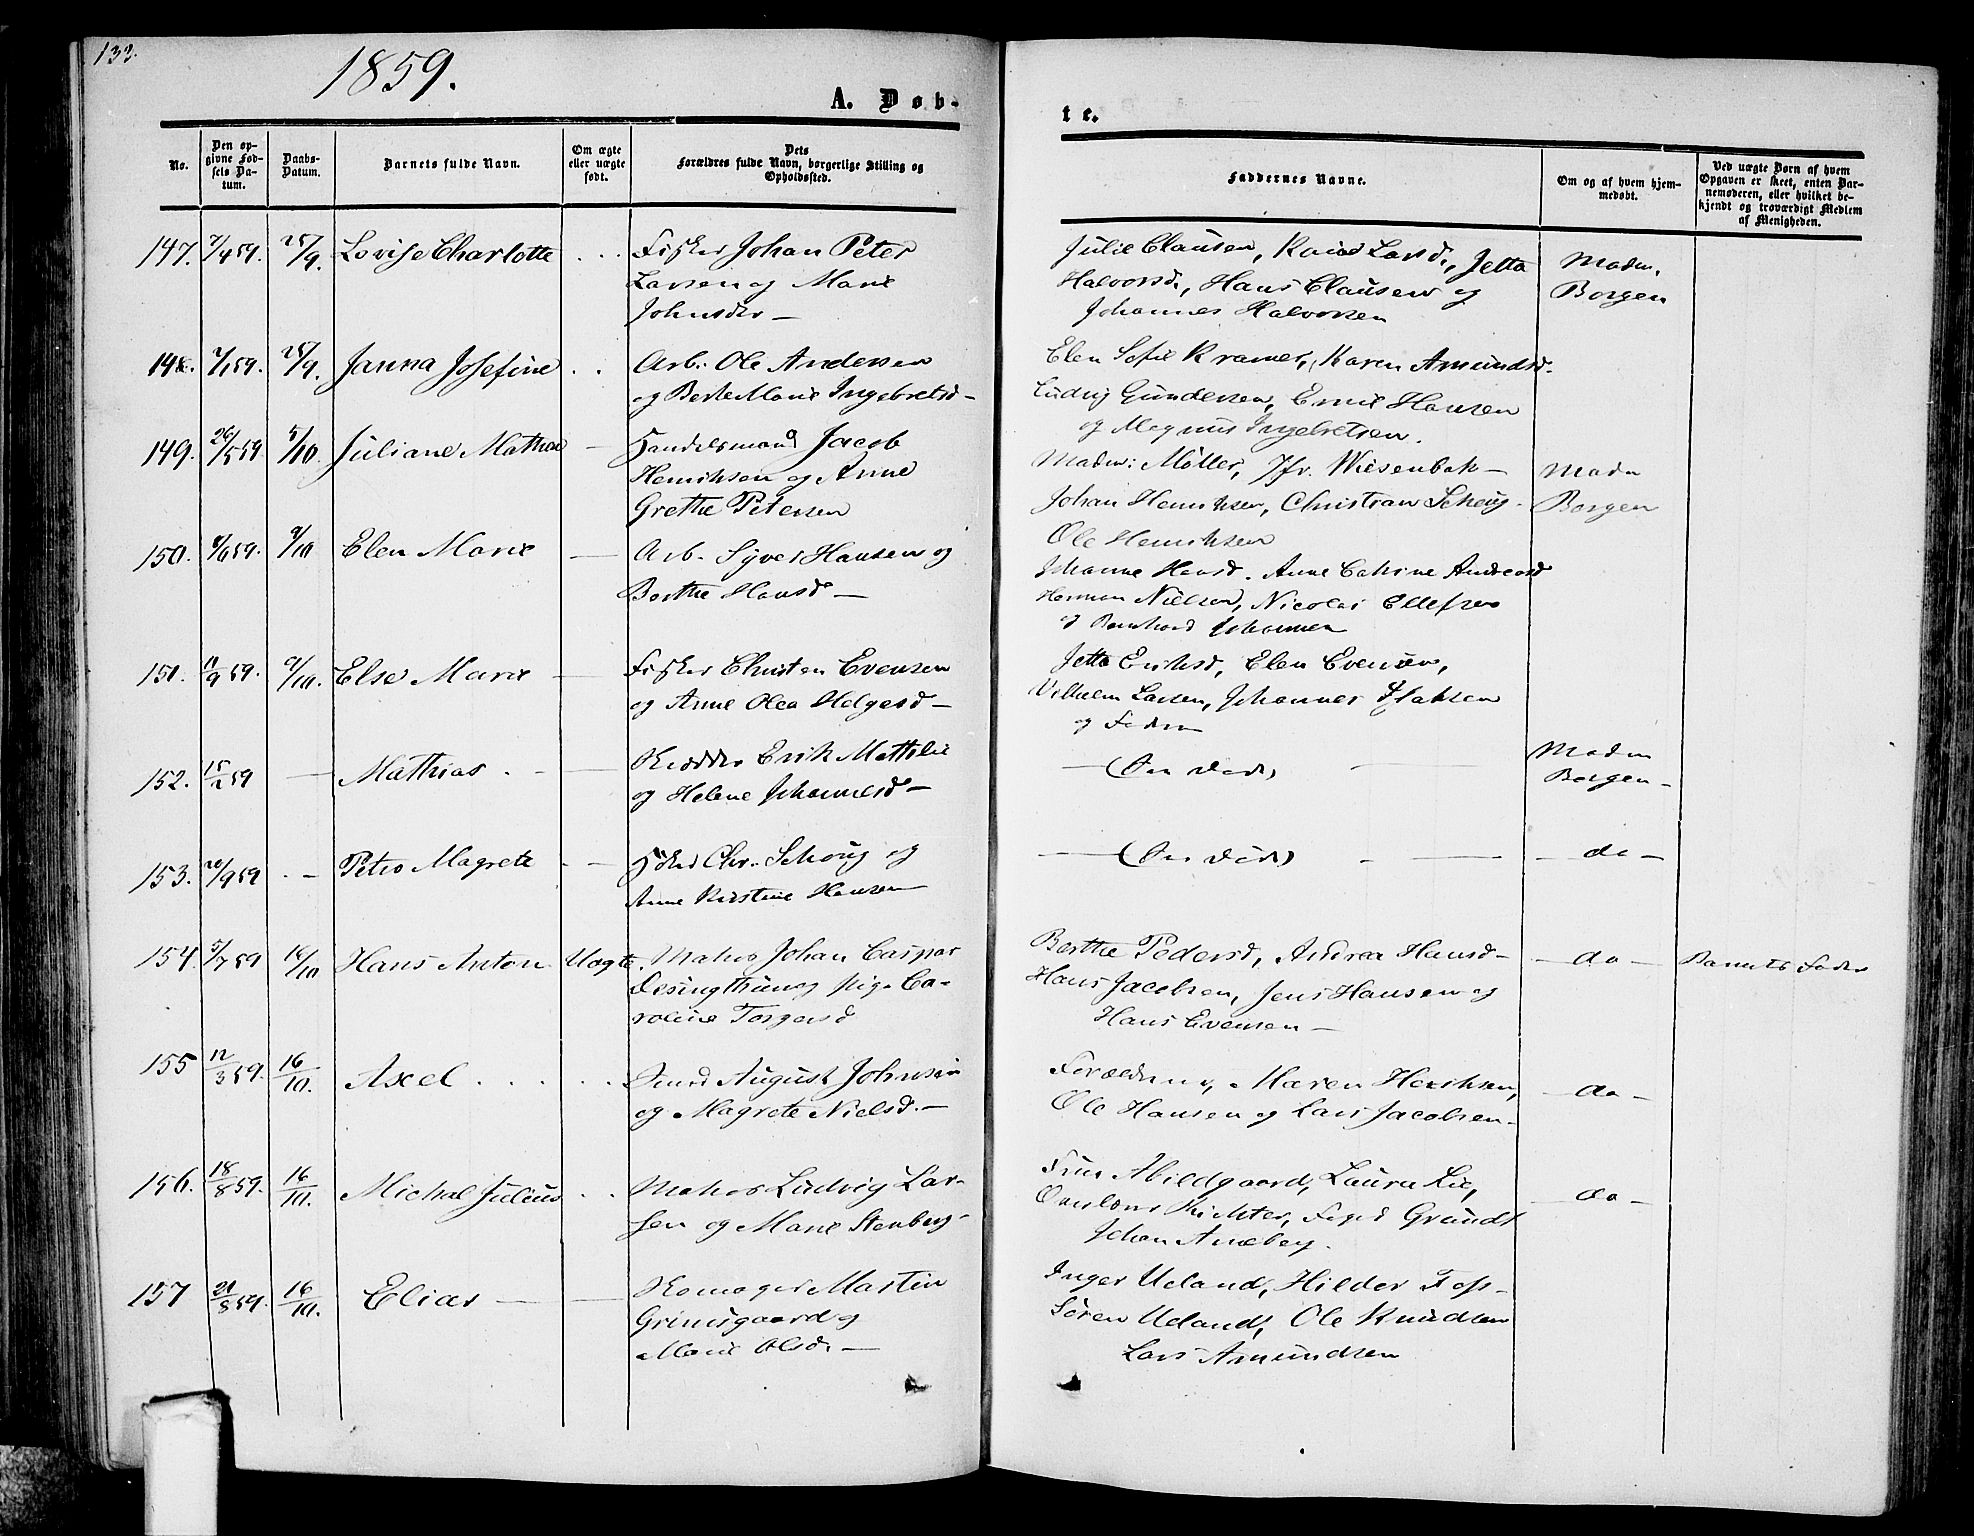 133.
1859.
A. Døb-
te.
No.
Den op-
givne Fød-
sels Da-
tum.
Daabs-
Datum.
Barnets fulde Navn.
Om ægte
eller uægte
født.
Dets
Forældres fulde Navn, borgerlige Stilling og
Opholdssted.
Faddernes Navne.
Om og af hvem hjem-
medøbt.
Ved uægte Børn af hvem
Opgaven er skeet, enten Bar-
nemoderen, eller hvilket be-
kjendt og troværdigt Medlem
af Menigheden.
147. 7/4 59. 25/9. Lovise Charlotte
Fisker Johan Peter
Larsen og Marie
Johnsdr —
Julie Clausen, Larsd., Jetta
Halvorsd., Hans Clausen og
Johannes Halvorsen
Madm.
Borgen
148. 7/1 59. 25/9. Janna Josefine
Arb. Ole Andersen
og Berte Marie Ingebretsd —
Elen Sofie Kramer, Karen Amundsd.
Ludvig Gundersen, Emil Hansen
og Magnus Ingebretsen.
149. 26/5 59 5/10. Juliane Mathea —
Handelsmand Jacob
Henriksen og Anne
Grethe Petersen
Madm: Møller, Jfr. Wiesenbak —
Johan Henriksen, Christian Schoug.
Ole Henriksen
Madm
Borgen
150. 8/6 59. 9/10 Elen Marie —
Arb. Syver Hansen og
Berthe Hansd —
Johanne Hansd. Anne Cathrine Andreasd
Herman Nielsen, Nicolai Ellefsen
og Bernhard Johannesen
151. 11/9 59. 9/10. Else Marie —
Fisker Christen Evensen
og Anne Olea Helgesd —
Jetta Eriksd, Elen Evensen,
Vilhelm Larsen, Johannes Isaksen
og Faderen
152. 59 — Mathias — —
Erik Mattilie
og Helene Johannesd —
— (Er død) —
Madm
Borgen —
153. 20/9 59 — Petra Magrete —
Fisker Chr. Schoug og
Anne Kirstine Hansen
— (Er død) —
— do —
154. 5/7 59 16/10 Hans Anton Uægte.
Matros Johan Casper
Desingthun og Pige Ca-
roline Torgersd
Berthe Pedersd, Andrea Hansd —
Hans Jacobsen, Jens Hansen og
Hans Evensen —
— do —
Barnets Fader
155 12/3 59. 16/10. Axel
Smed August Johnsen
og Magrete Nielsd. —
Forældrene, Maren Henriksen,
Ole Hansen og Lars Jacobsen —
— do —
156. 18/8 59. 16/10. Michal Julius
Matros Ludvig Lar-
sen og Marie Stenberg —
Frue Abildgaard, Laura Lie,
Richter, Foged Grundt
Johan Aneby.
— do —
157 21/8 59. 16/10. Elias — —
Martin
Grimsgaard og
Marie Olsdr —
Inger Ueland, Hilder Foss —
Søren Ueland, Ole Knudsen
Lars Amundsen